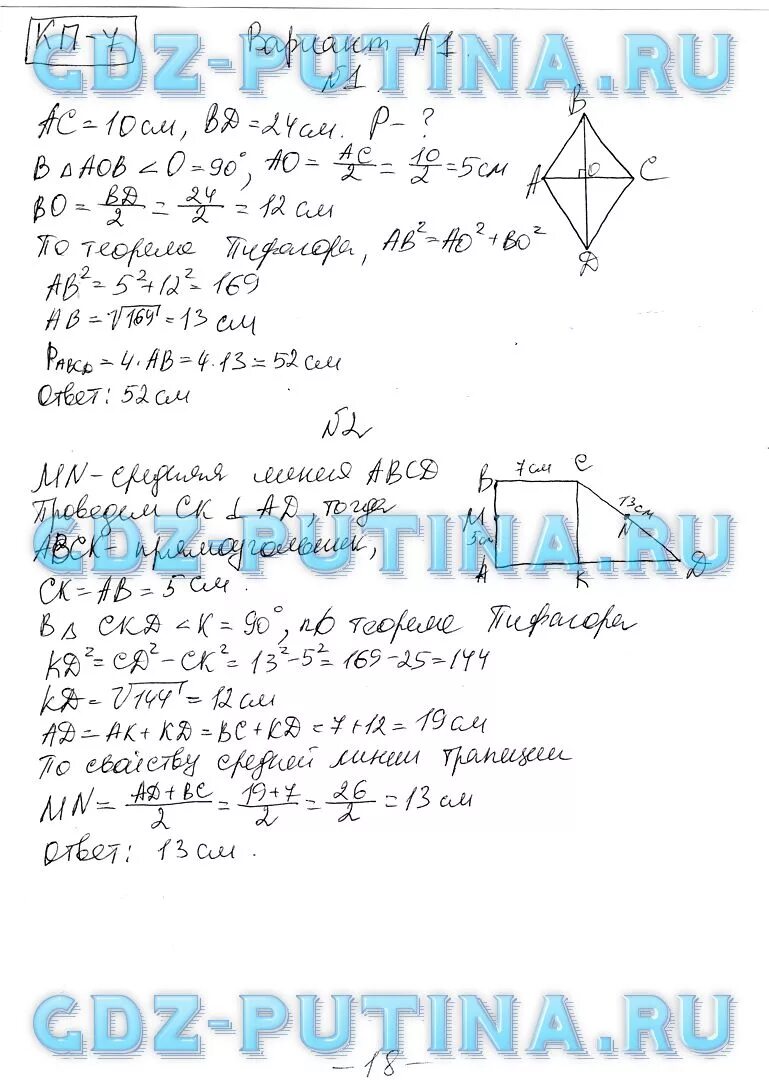 КП-7
Вариант А1.
GDZ-PUTINA.RU
№1
AC = 10 см, BD = 24 см. P - ?
В Δ AOB ∠O = 90°, AO = AC/2 = 10/2 = 5 см
BO = BD/2 = 24/2 = 12 см
По теореме Пифагора, AB² = AO² + BO²
AB² = 5² + 12² = 169
AB = √169 = 13 см
P ABCD = 4 · AB = 4 · 13 = 52 см
Ответ: 52 см
B
A
O
C
D
№2
MN - средняя линия ABCD
Проведем CK ⊥ AD, тогда
ABCK - прямоугольник,
GDZ-PUTINA.RU
CK = AB = 5 см.
В Δ CKD ∠K = 90°, по теореме Пифагора
KD² = CD² - CK² = 13² - 5² = 169 - 25 = 144
KD = √144 = 12 см
AD = AK + KD = BC + KD = 7 + 12 = 19 см
По свойству средней линии трапеции
MN = AD + BC/2 = 19 + 7/2 = 26/2 = 13 см
Ответ: 13 см.
B
7 см
C
13 см
M
N
5 см
A
K
D
GDZ-PUTINA.RU
- 18 -